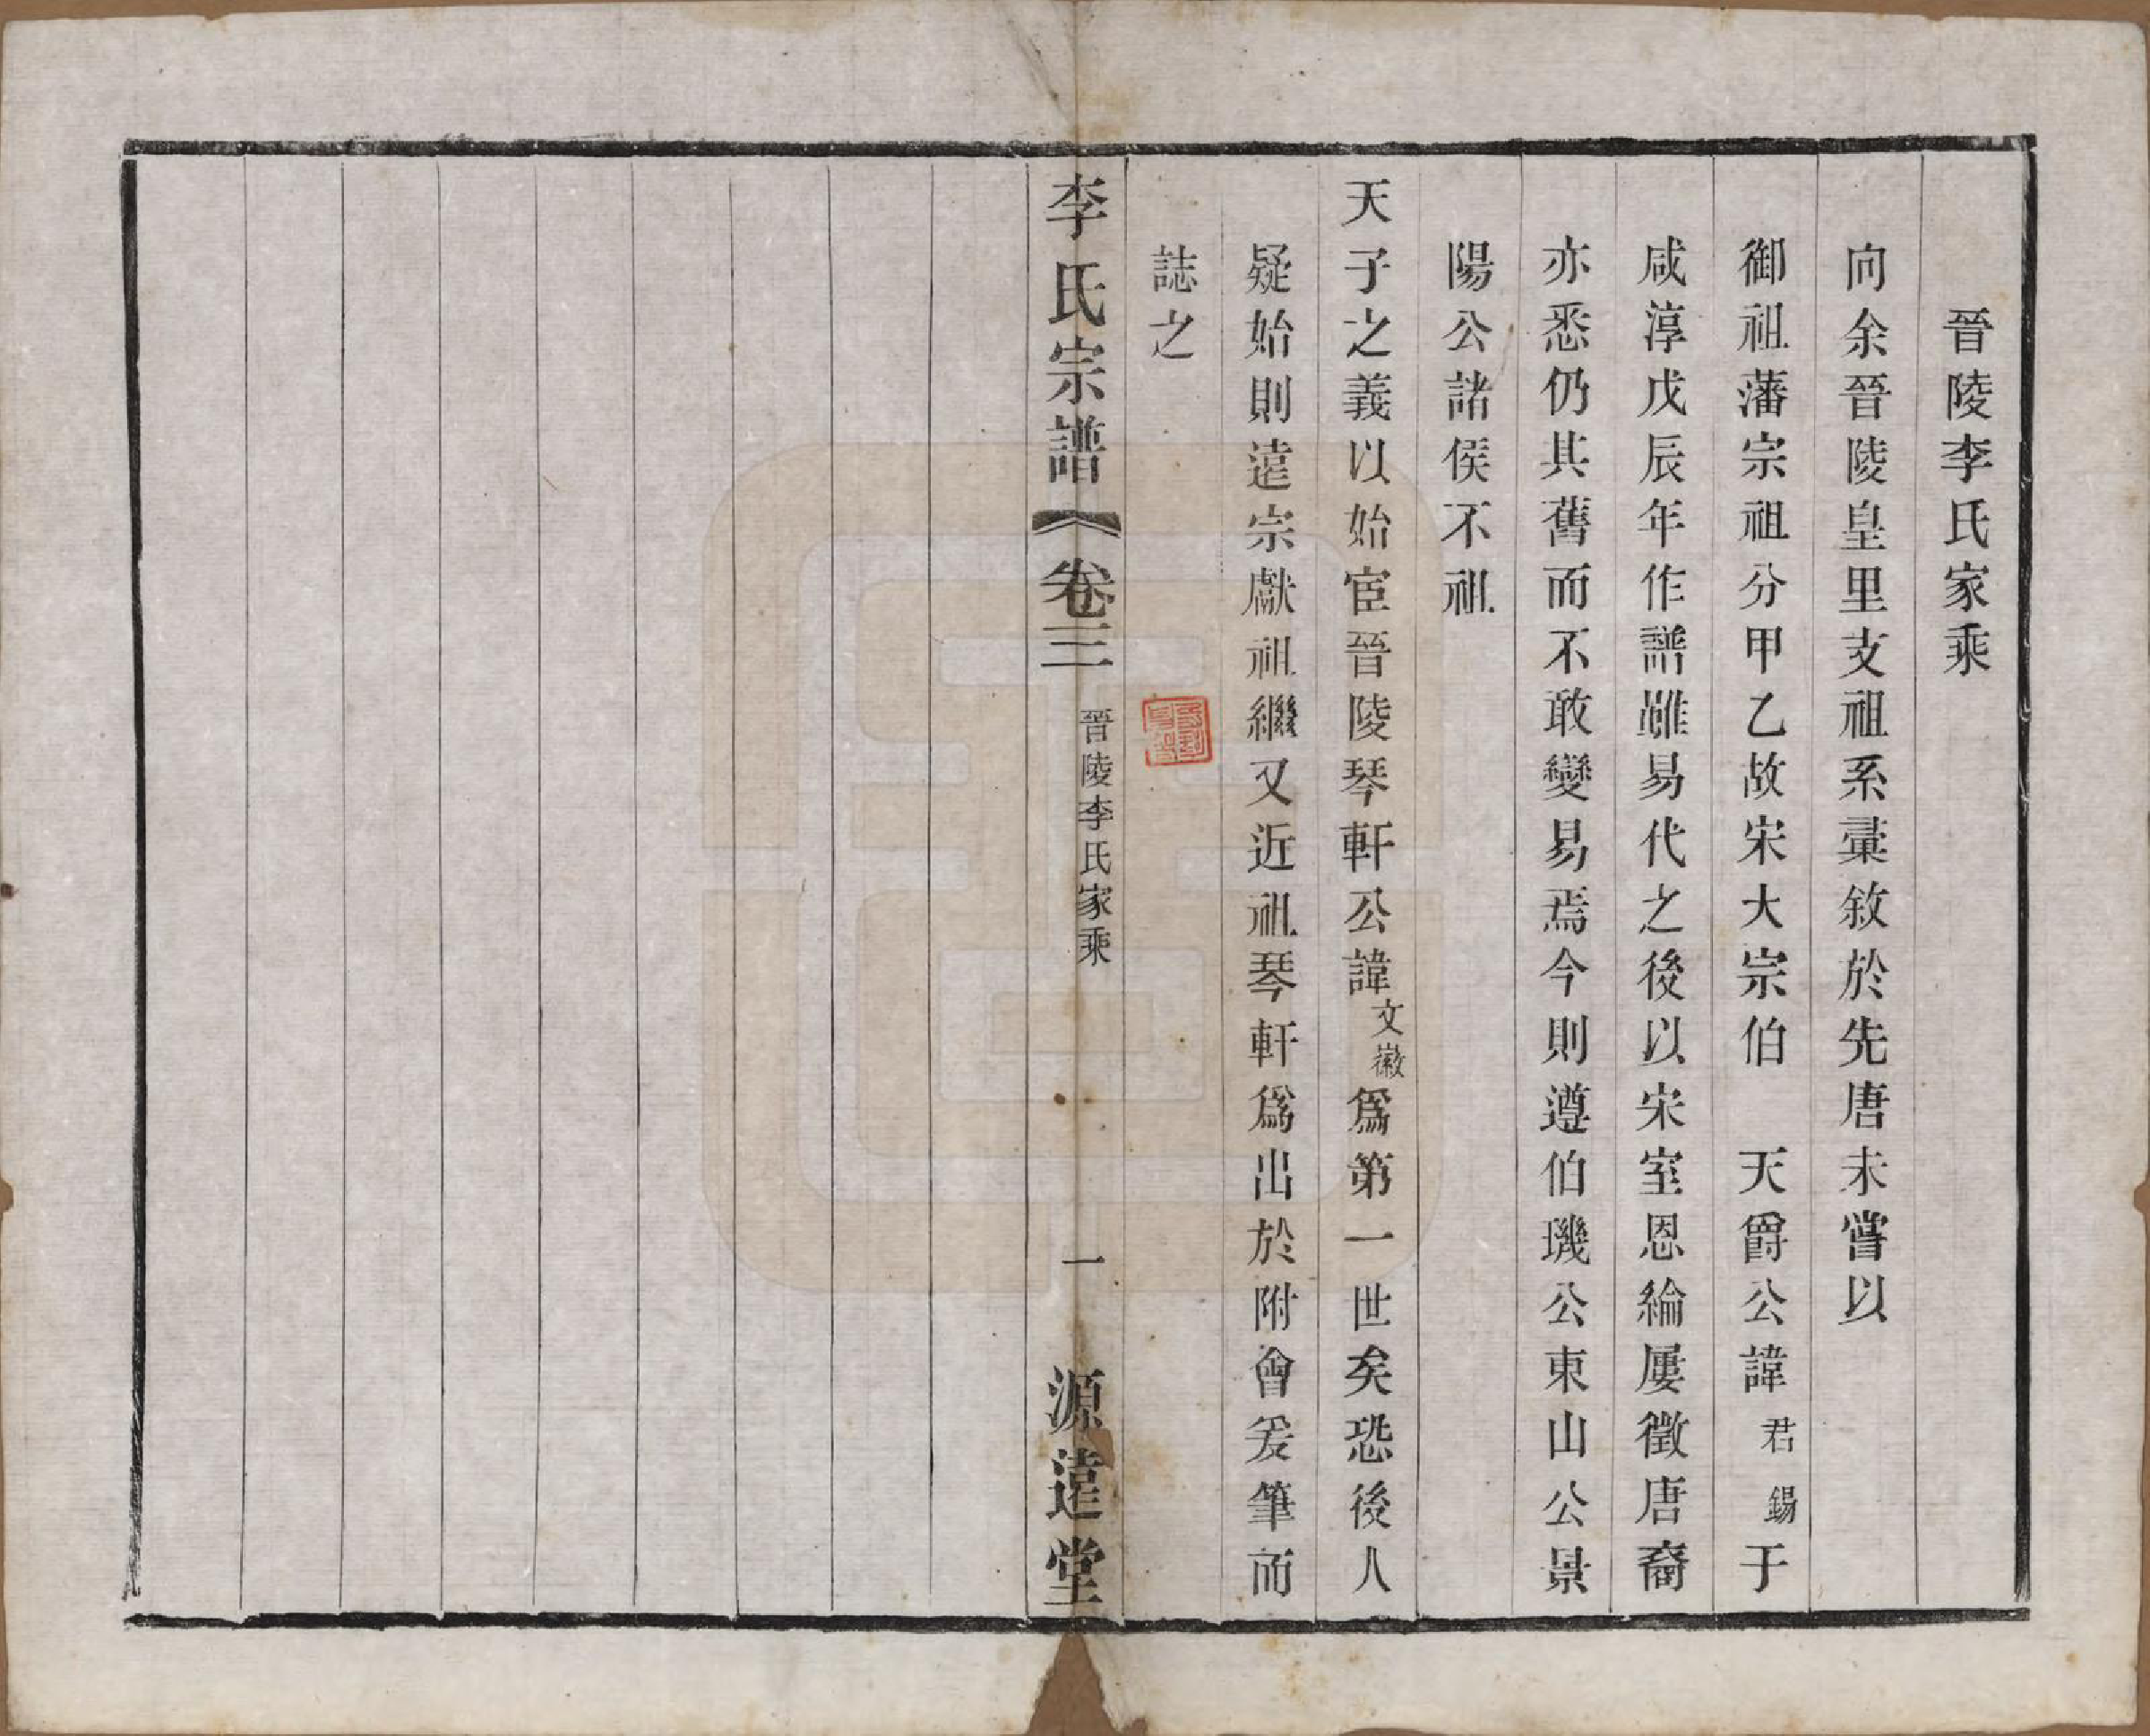 晉陵李氏家乘
向余晉陵皇里支祖系彚敘於先唐未嘗以
御祖藩宗祖分甲乙故宋大宗伯　天爵公諱君錫于
咸淳戊辰年作譜雖易代之後以宋室恩綸屢徵唐裔
亦悉仍其舊而不敢變易焉今則遵伯璣公東山公景
陽公諸侯不祖
天子之義以始宦晉陵琴軒公諱文徽爲第一世矣恐後人
疑始則遠宗獻祖繼又近祖琴軒爲出於附會爰筆而
誌之
李氏宗譜 卷三 晉陵李氏家乘 一 源遠堂